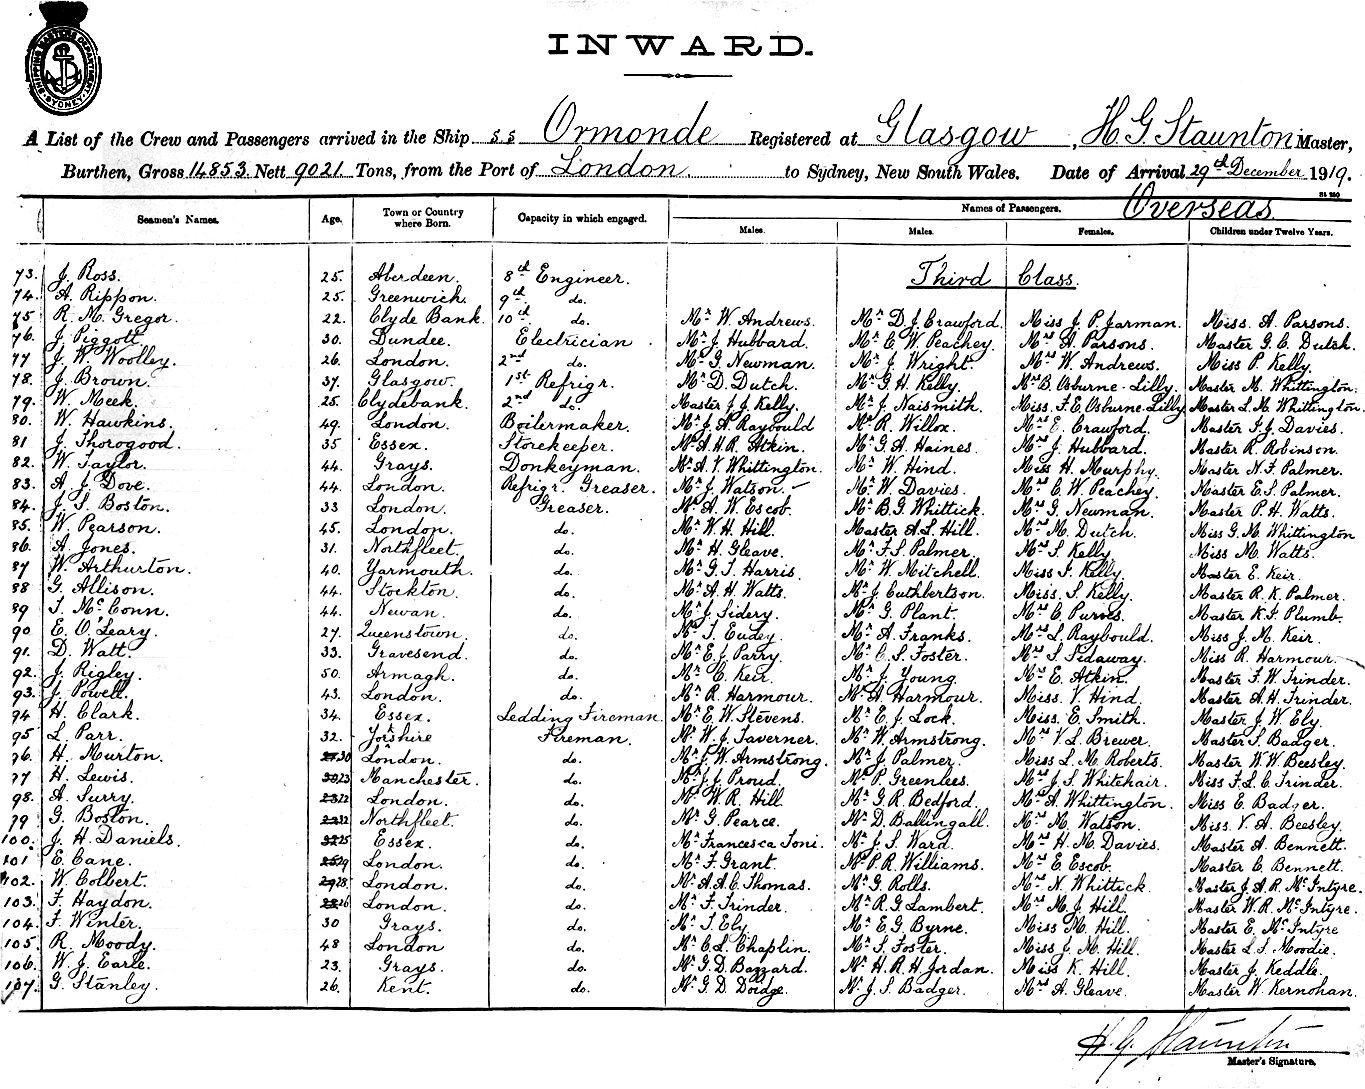 SHIPPING MASTERS DEPARTMENT SYDNEY
INWARD.
A List of the Crew and Passengers arrived in the Ship s.s Ormonde Registered at Glasgow, H. G. Staunton Master,
Burthen, Gross 14853 Nett 9021 Tons, from the Port of London. to Sydney, New South Wales. Date of Arrival 29th December 1919.
Names of Passengers. Overseas
Seamen's Names. Age. Town or Country where Born. Capacity in which engaged. Males. Males. Females. Children under Twelve Years.
73. J. Ross. 25. Aberdeen. 8th Engineer. Third Class.
74. A. Rippon. 25. Greenwich. 9th do.
75 R. M. Gregor. 22. Clyde Bank. 10th do. Mr W. Andrews. Mr D. J. Crawford. Miss J. P. Jarman. Miss. A. Parsons.
76. J. Piggott. 30. Dundee. Electrician. Mr J. Hubbard. Mr C. W. Peachey. Mrs A. Parsons. Master G. C. Dutch.
77 J. W. Woolley. 26. London. 2nd do. Mr G. Newman. Mr J. Wright. Mrs W. Andrews. Miss P. Kelly.
78. J. Brown. 37. Glasgow. 1st Refrigr. Mr D. Dutch. Mr G. H. Kelly. Mrs B. Osburne-Lilly. Master M. Whittington.
79. W. Meek. 25. Clydebank. 2nd do. Master J. J. Kelly. Mr J. Naismith. Miss. F. E. Osburne-Lilly Master L. M. Whittington.
80. W. Hawkins. 49. London. Boilermaker. Mr J. A. Raybould Mr R. Willox. Mrs E. Crawford. Master F. J. Davies.
81 J. Thorogood. 35 Essex. Storekeeper. Mr A. H. R. Atkin. Mr G. A. Haines. Mrs J. Hubbard. Master R. Robinson.
82. W. Taylor. 44. Grays. Donkeyman. Mr A. V. Whittington. Mr W. Hind. Miss H. Murphy. Master N. F. Palmer.
83. A. J. Dove. 44. London. Refrigr. Greaser. Mr J. Watson. Mr W. Davies. Mrs C. W. Peachey. Master E. S. Palmer.
84. J. S. Boston. 33 London. Greaser. Mr A. W. Escob. Mr B. G. Whittick. Mrs G. Newman. Master P. H. Watts.
85. W. Pearson. 45. London. do. Mr W. H. Hill. Master A. L. Hill. Mrs M. Dutch. Miss G. M. Whittington
86. A. Jones. 31. Northfleet. do. Mr H. Gleave. Mr F. S. Palmer. Mrs S. Kelly Miss M. Watts.
87 W. Arthurton. 40. Yarmouth. do. Mr G. T. Harris. Mr W. Mitchell. Miss J. Kelly. Master E. Keir.
88 G. Allison. 44. Stockton. do. Mr A. H. Watts. Mr J. Cuthbertson. Miss. S. Kelly. Master R. K. Palmer.
89 T. McConn. 44. Newan. do. Mr J. Sidery. Mr G. Plant. Mrs C. Purves. Master K. F. Plumb.
90 E. O'Leary. 27. Queenstown. do. Mr T. Eudey. Mr A. Franks. Mrs L. Raybould. Miss J. M. Keir.
91. D. Watt. 33. Gravesend. do. Mr E. J. Parry. Mr C. S. Foster. Mrs S. Sidaway. Miss R. Harmour.
92. J. Rigley. 50. Armagh. do. Mr C. Keir. Mr J. Young. Mrs E. Atkin. Master F. W. Trinder.
93. J. Powell. 43. London. do. Mr R. Harmour. Mr A. Harmour. Miss. V. Hind. Master A. H. Trinder.
94 H. Clark. 34. Essex. Ledding Fireman. Mr E. W. Stevens. Mr E. J. Lock. Miss. E. Smith. Master J. W. Ely.
95 L. Parr. 32. Yorshire Fireman. Mr W. J. Taverner. Mr W. Armstrong. Mrs V. L. Brewer. Master S. Badger.
96. H. Murton. 30 London. do. Mr J. W. Armstrong. Mr J. Palmer. Miss L. M. Roberts. Master W. W. Beesley.
97 H. Lewis. 23 Manchester. do. Mr J. J. Proud. Mr P. Greenlees. Mrs J. S. Whitehair. Miss F. L. C. Trinder.
98. A. Surry. 22 London. do. Mr W. R. Hill. Mr G. R. Bedford. Mrs A. Whittington. Miss E. Badger.
99 G. Boston. 32 Northfleet. do. Mr G. Pearce. Mr D. Ballingall. Mrs M. Watson. Miss. V. A. Beesley.
100. J. H. Daniels. 25 Essex. do. Mr Francesca Toni. Mr J. S. Ward. Mrs H. M. Davies. Master A. Bennett.
101 E. Cane. 29 London. do. Mr F. Grant. Mr P. R. Williams. Mrs E. Escob. Master C. Bennett.
102. W. Colbert. 28 London. do. Mr A. A. C. Thomas. Mr G. Rolls. Mrs N. Whittick. Master J. A. R. McIntyre.
103. F. Haydon. 26 London. do. Mr F. Trinder. Mr R. G. Lambert. Mrs M. J. Hill. Master W. R. McIntyre.
104. F. Winter. 30 Grays. do. Mr T. Ely. Mr E. G. Byrne. Miss M. Hill. Master E. McIntyre
105. R. Moody. 48 London do. Mr C. L. Chaplin. Mr S. Foster. Miss J. M. Hill. Master L. S. Moodie.
106. W. J. Earle. 23. Grays. do. Mr G. D. Bazzard. Mr H. R. H. Jordan. Miss K. Hill. Master J. Keddle.
107. G. Stanley. 26. Kent. do. Mr G. D. Doidge. Mr J. S. Badger. Mrs A. Gleave. Master W. Kernohan.
H. G. Staunton
Master's Signature.